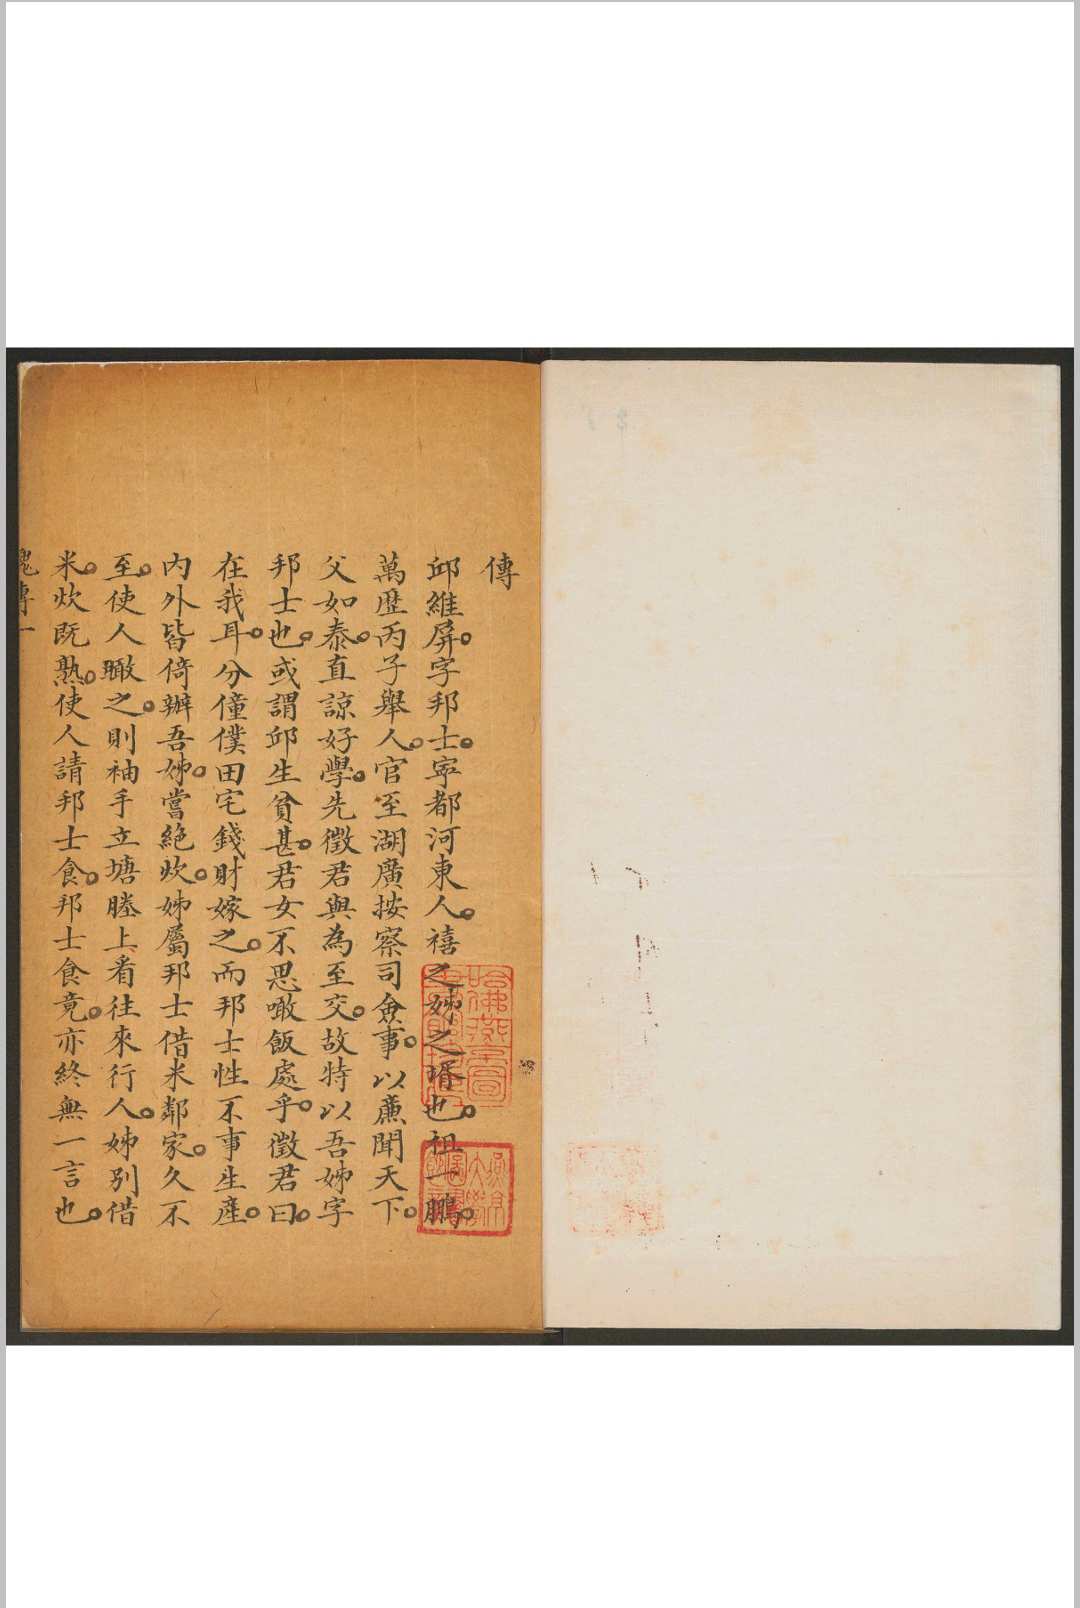 傳
邱維屏。字邦士。寜都河東人。禧之姊之壻也。祖一鵬。
萬歷丙子舉人。官至湖廣按察司僉事。以亷聞天下。
父如泰。直諒好學。先徵君與為至交。故特以吾姊字
邦士也。或謂邱生貧甚。君女不思噉飯處乎。徵君曰。
在我耳。分僮僕田宅錢財嫁之。而邦士性不事生產。
内外皆倚辦吾姊。嘗絶炊。姊屬邦士借米鄰家。久不
至。使人瞰之。則袖手立塘塍上看往來行人。姊別借
米。炊既熟。使人請邦士食。邦士食竟。亦終無一言也。
魏傳一
哈佛燕京